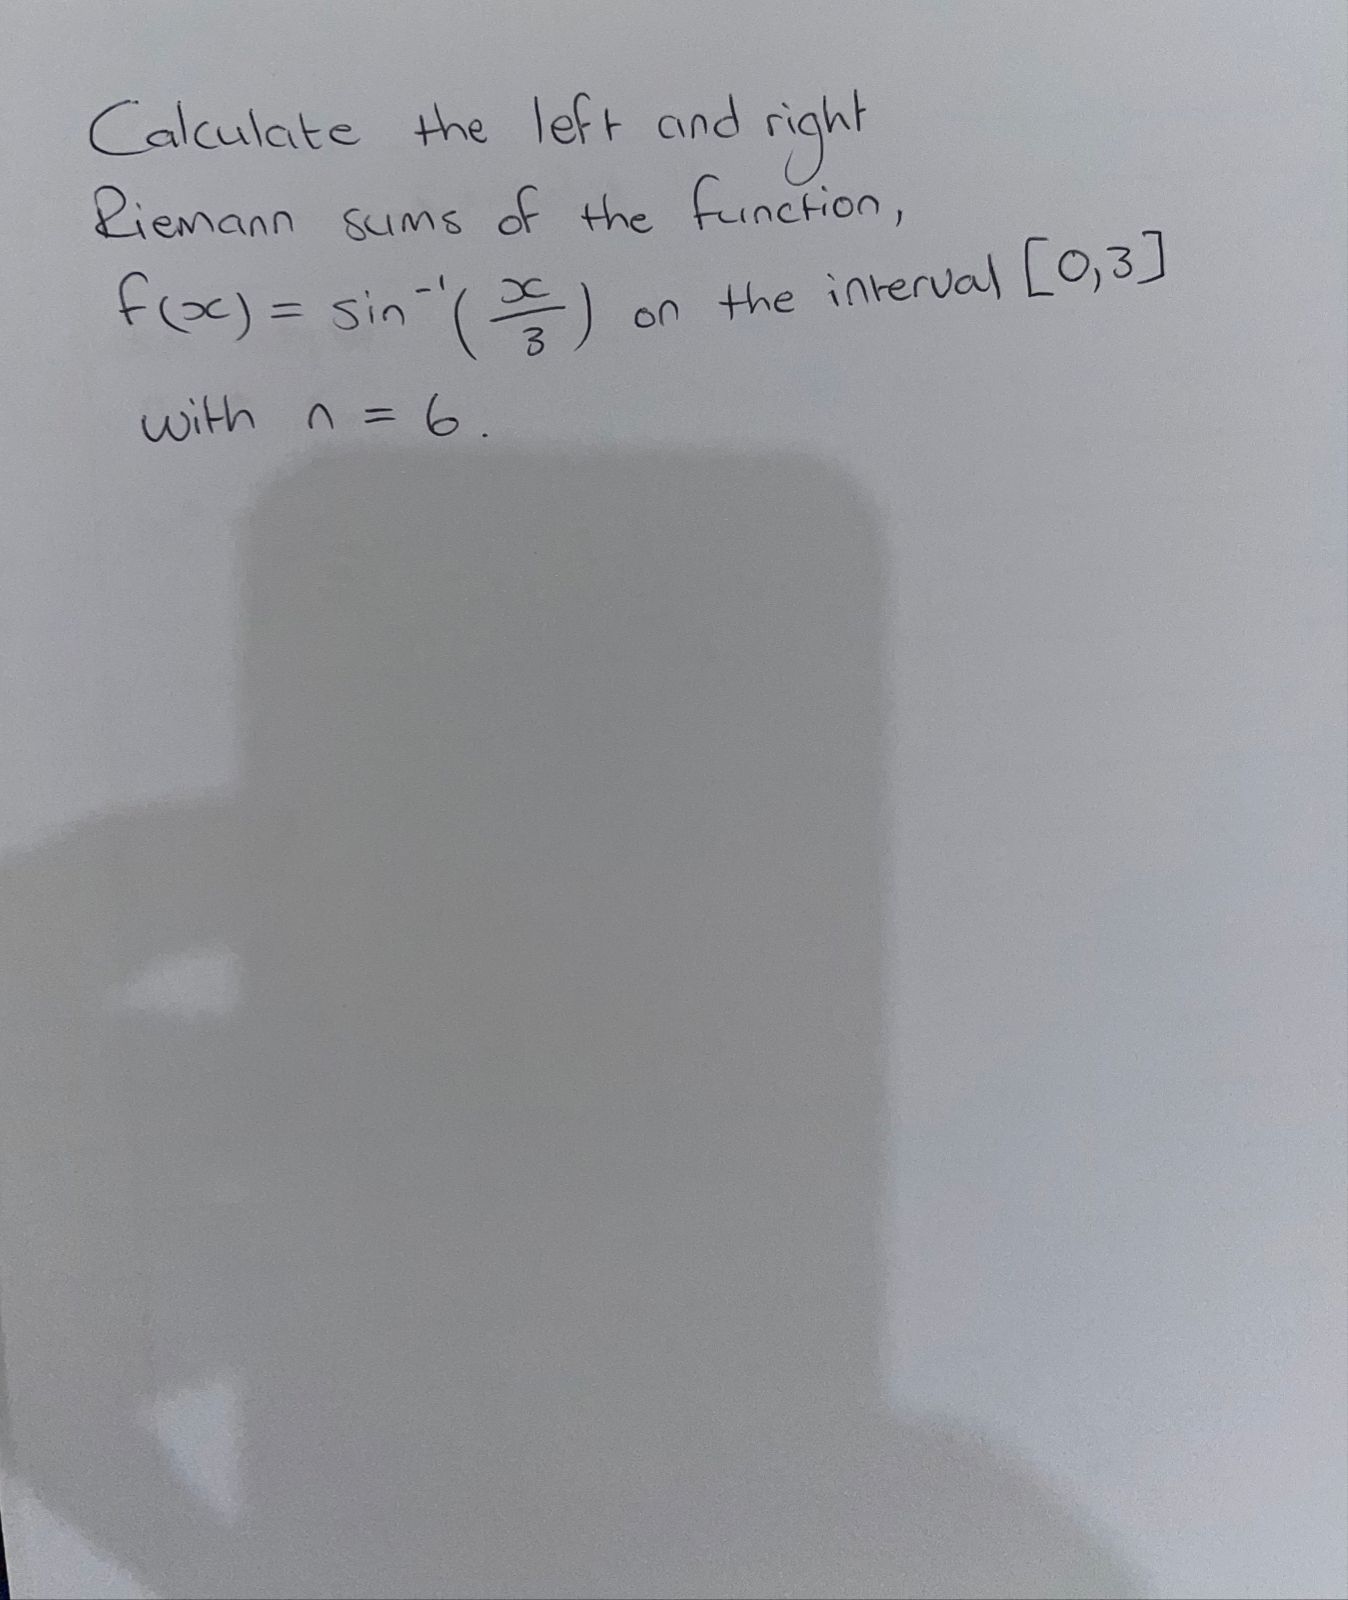 Calculate the left and right
Riemann sums of the function,
f(x) = sin⁻¹(x/3) on the interval [0,3]
with n = 6.